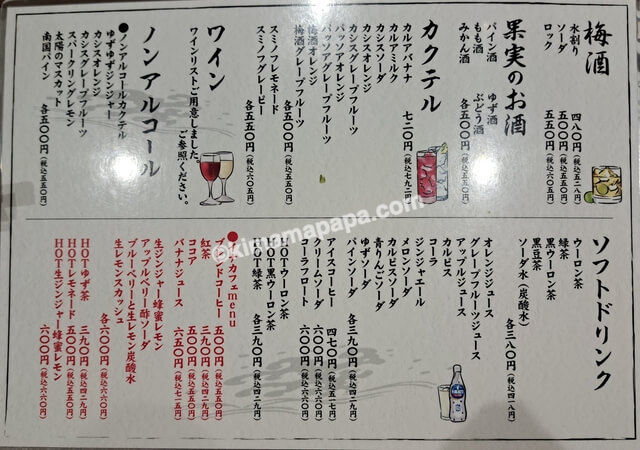 梅酒
水割り 四八〇円(税込五二八円)
ソーダ 五〇〇円(税込五五〇円)
ロック 五五〇円(税込六〇五円)
果実のお酒
パイン酒
もも酒
みかん酒
ゆず酒
ぶどう酒
各五〇〇円(税込五五〇円)
カクテル
カルアバナナ 七二〇円(税込七九二円)
カルアミルク
カシスソーダ
カシスオレンジ
カシスグレープフルーツ
パッソアオレンジ
パッソアグレープフルーツ
梅酒オレンジ
梅酒グレープフルーツ
各五〇〇円(税込五五〇円)
スミノフレモネード
スミノフグレーピー
各五五〇円(税込六〇五円)
ワイン
ワインリストご用意しました。
ご参照ください。
ノンアルコール
●ノンアルコールカクテル
ゆずゆずジンジャー
カシスオレンジ
カシスグレープフルーツ
スパークリングレモン
太陽のマスカット
南国パイン
各五五〇円(税込六〇五円)
ソフトドリンク
ウーロン茶
緑茶
黒ウーロン茶
黒豆茶
ソーダ水(炭酸水)
各三八〇円(税込四一八円)
オレンジジュース
グレープフルーツジュース
アップルジュース
カルピス
コーラ
ジンジャエール
メロンソーダ
カルピスソーダ
青りんごソーダ
ゆずソーダ
パインソーダ
各三九〇円(税込四二九円)
アイスコーヒー 四七〇円(税込五一七円)
クリームソーダ 六〇〇円(税込六六〇円)
コーラフロート 六〇〇円(税込六六〇円)
HOTウーロン茶
HOT黒ウーロン茶
HOT緑茶
各三九〇円(税込四二九円)
●カフェmenu
ブレンドコーヒー 五〇〇円(税込五五〇円)
紅茶 三九〇円(税込四二九円)
ココア 五〇〇円(税込五五〇円)
バナナジュース 六五〇円(税込七一五円)
生ジンジャー蜂蜜レモン
アップルベリー酢ソーダ
ブルーベリーと生レモン炭酸水
生レモンスカッシュ
各六〇〇円(税込六六〇円)
HOTゆず茶 三九〇円(税込四二九円)
HOTレモネード 五〇〇円(税込五五〇円)
HOT生ジンジャー蜂蜜レモン 六〇〇円(税込六六〇円)
©kimamapapa.com